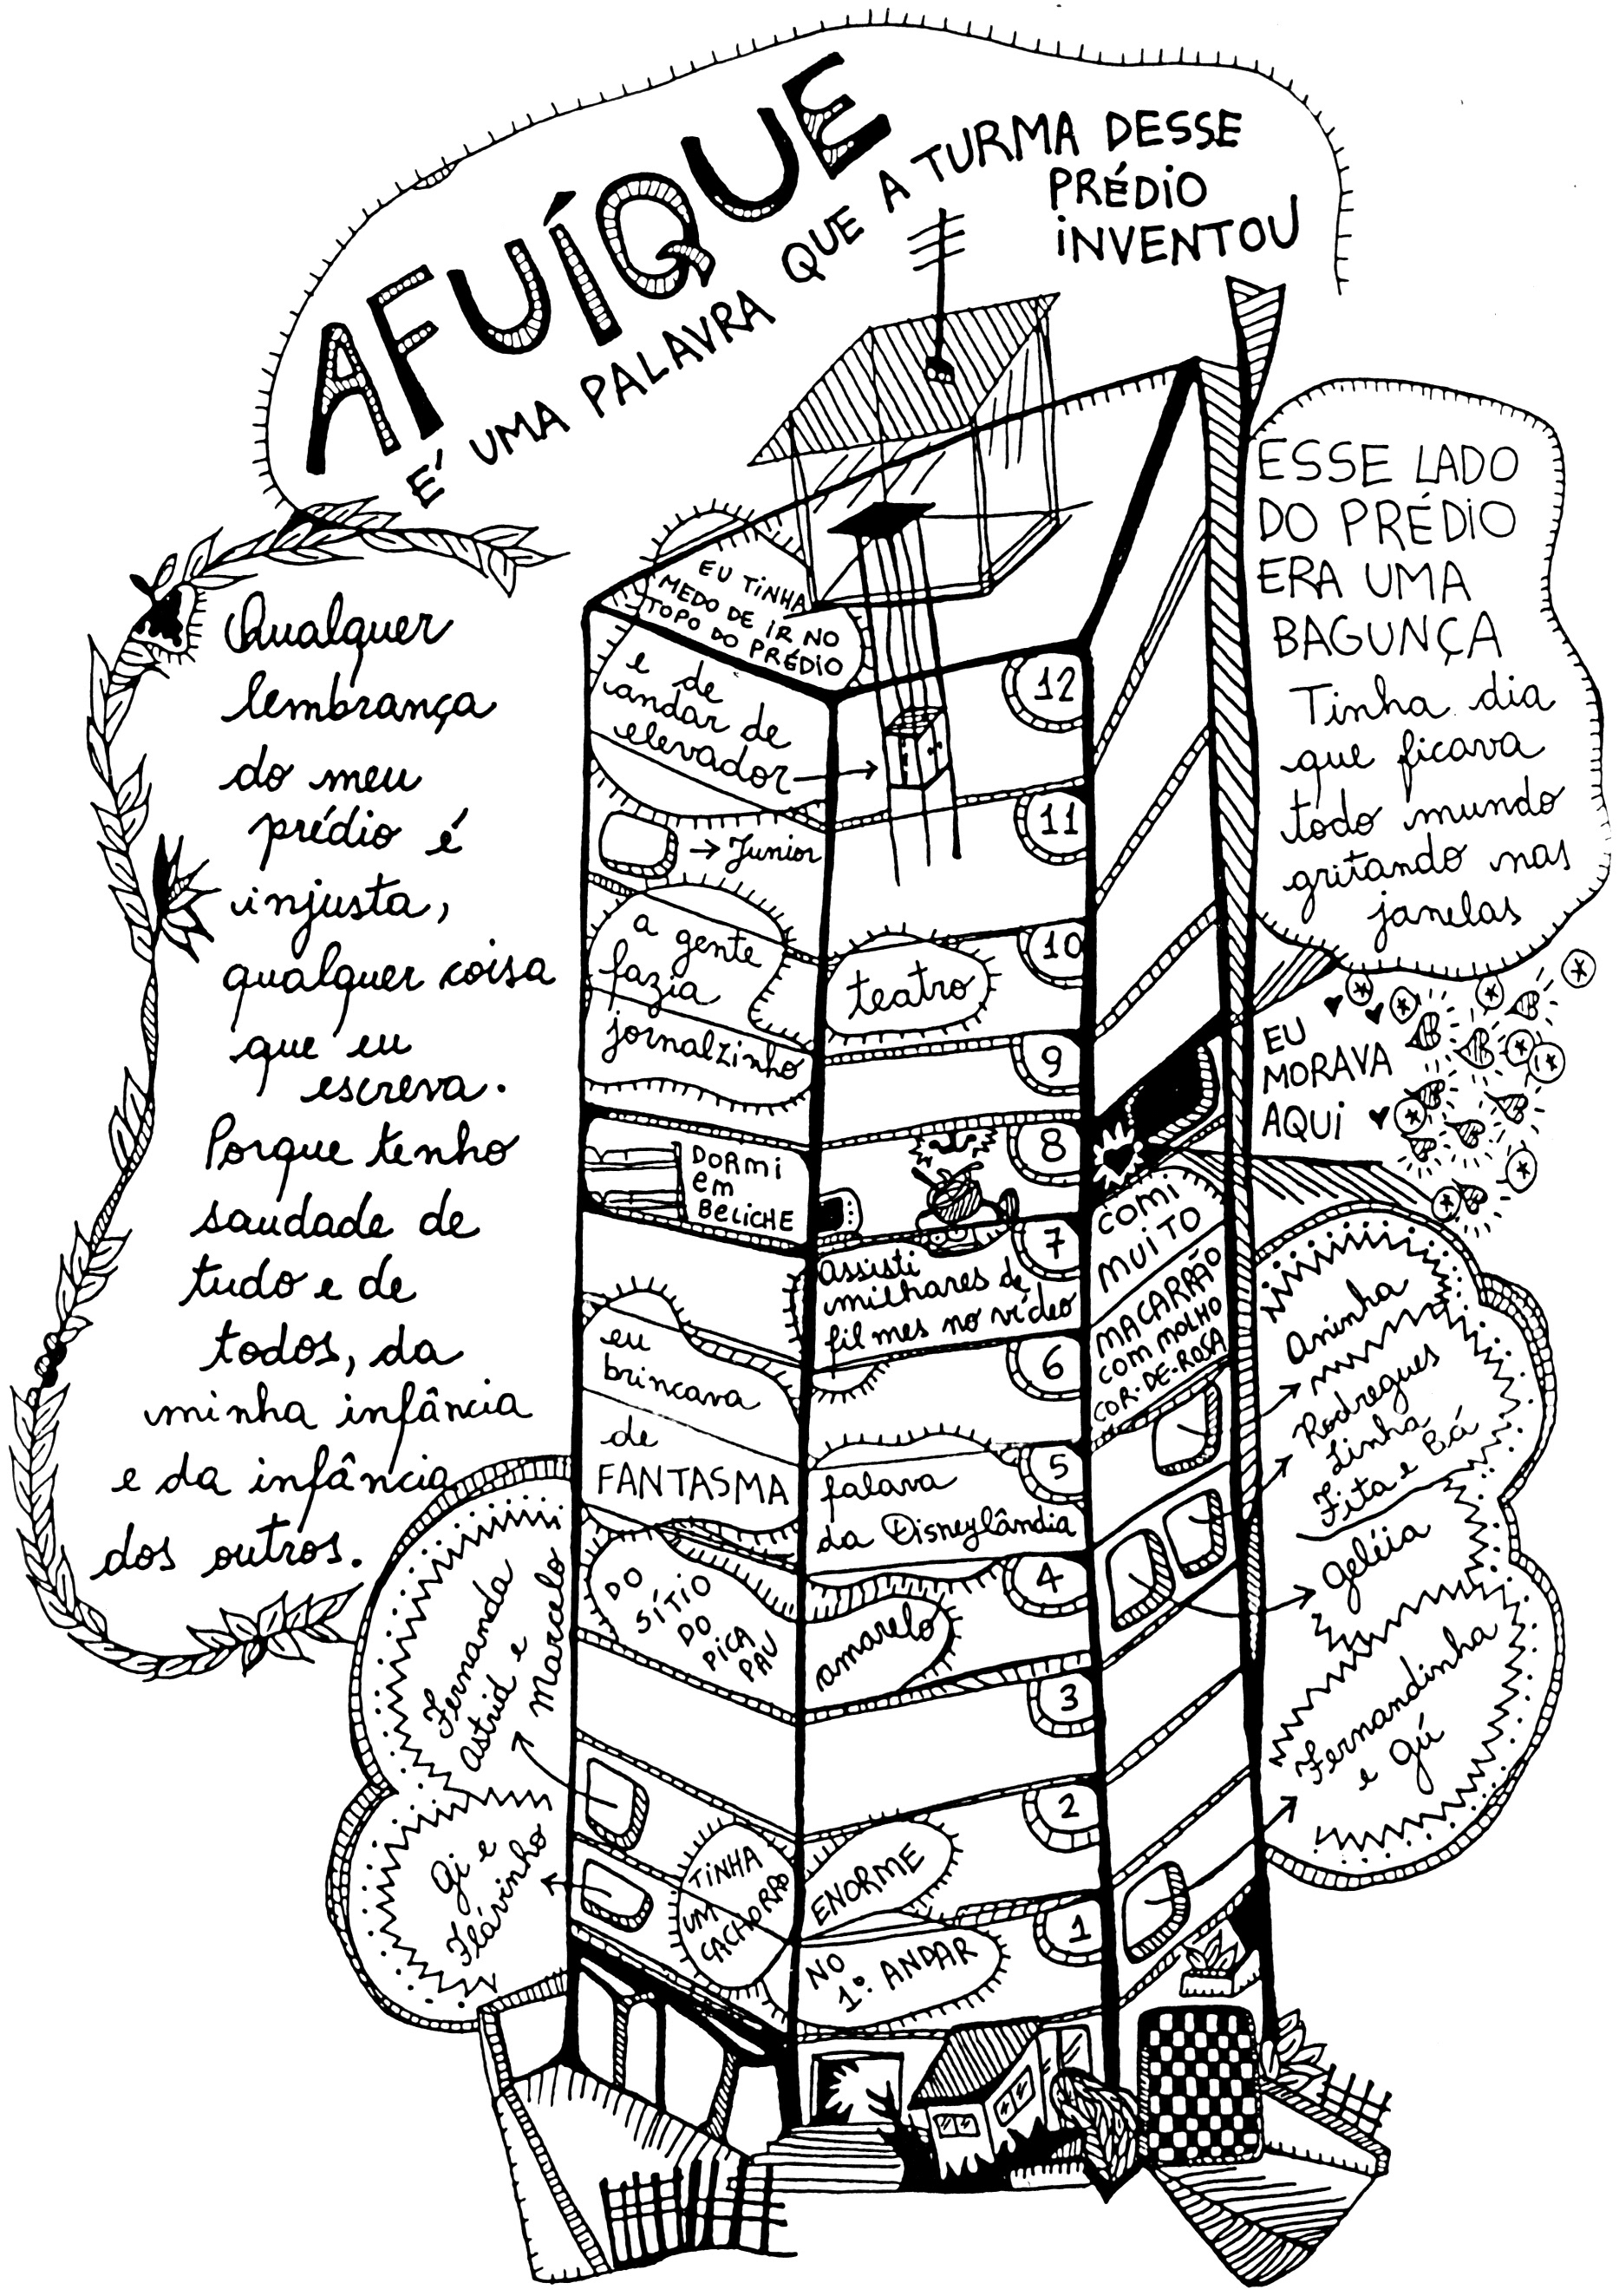 AFUÍQUE
É UMA PALAVRA QUE A TURMA DESSE
PRÉDIO
INVENTOU
Qualquer
lembrança
do meu
prédio é
injusta,
qualquer coisa
que eu
escreva.
Porque tenho
saudade de
tudo e de
todos, da
minha infância
e da infância
dos outros.
EU TINHA
MEDO DE IR NO
TOPO DO PRÉDIO
e de
andar de
elevador
12
→ Junior
11
a gente
fazia
jornalzinho
teatro
10
9
DORMI
EM
BELICHE
8
7
assisti
milhares de
filmes no vídeo
eu
brincava
de
FANTASMA
6
falava
da Disneylândia
5
DO
SÍTIO
DO
PICA
PAU
amarelo
4
3
2
TINHA
UM
CACHORRO
ENORME
NO
1º ANDAR
1
ESSE LADO
DO PRÉDIO
ERA UMA
BAGUNÇA
Tinha dia
que ficava
todo mundo
gritando nas
janelas
EU
MORAVA
AQUI
COMI
MUITO
MACARRÃO
COM MOLHO
COR-DE-ROSA
Aninha
Rodregues
Linha
Fita e Bá
Geléia
Fernandinha
e Gú
Fernanda
Astrid e
Marcelo
Gi e
Flávinho